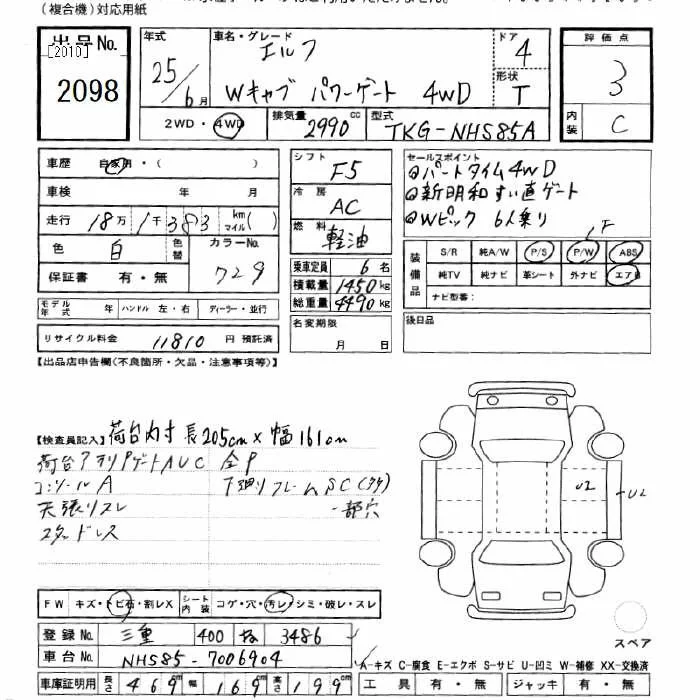 (複合機)対応用紙
出品No.
[2010]
2098
年式 25/6月
車名・グレード エルフ
Wキャブ パワーゲート 4WD
ドア 4
形状 T
評価点 3
内装 C
2WD・4WD
排気量 2990cc
型式 TKG-NHS85A
車歴 自家用・( )
車検 年 月
走行 18万1千383 km マイル( )
色 白 色替 カラーNo. 729
保証書 有・無
モデル年式 年 ハンドル 左・右 ディーラー・並行
リサイクル料金 11810 円 預託済
シフト F5
冷房 AC
燃料 軽油
乗車定員 6名
積載量 1450kg
総重量 4490kg
名変期限
月 日
セールスポイント
パートタイム4WD
新明和すい直ゲート
Wピック 6人乗り
装備品
S/R 純A/W P/S P/W ABS
純TV 純ナビ 革シート 外ナビ エアB
ナビ型番:
後日品
【出品店申告欄(不良箇所・欠品・注意事項等)】
【検査員記入】荷台内寸 長205cm×幅161cm
荷台アオリPゲートAUC 全P
コンソールA 下廻りフレームSC
天張りスレ 一部穴
スタッドレス
U2
U2
スペア
FW キズ・トビ石・割レX シート内装 コゲ・穴・汚レ・シミ・破レ・スレ
登録No. 三重 400 3486
車台No. NHS85-7006904
A-キズ C-腐食 E-エクボ S-サビ U-凹ミ W-補修 XX-交換済
車庫証明用 長さ 469 幅 169 高さ 199 cm
工具 有・無 ジャッキ 有・無